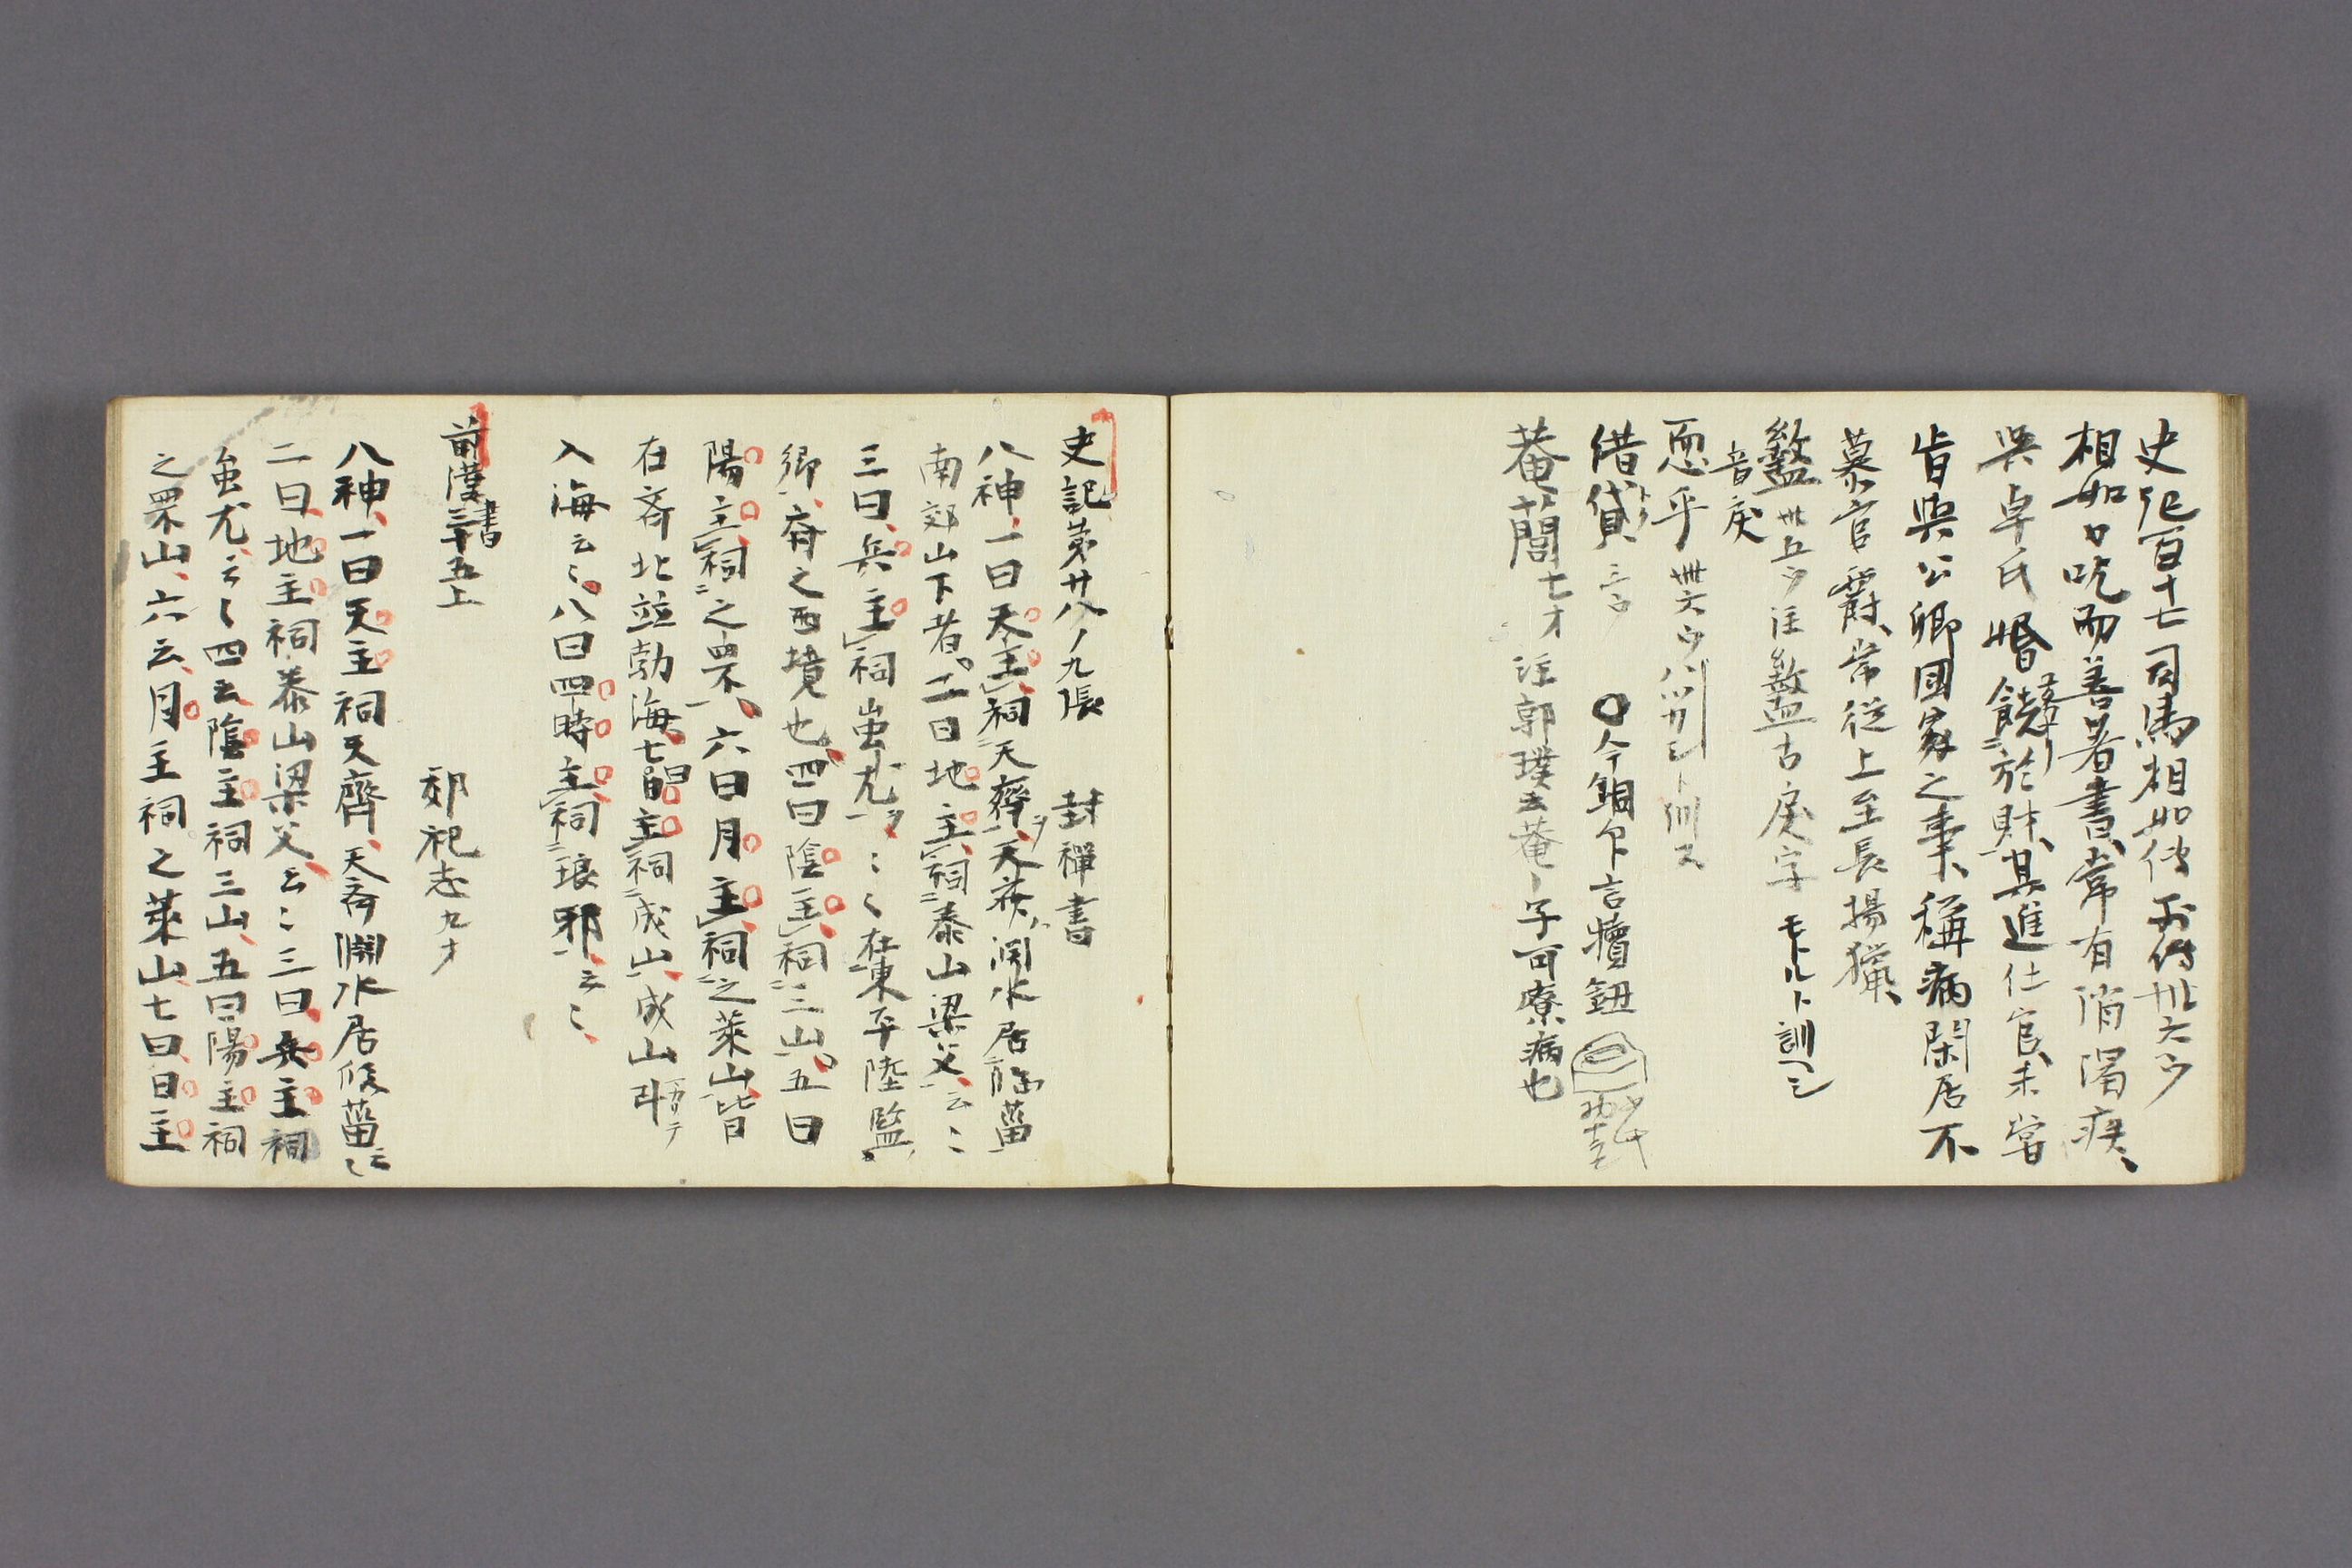 史記百十七司馬相如傳 列傳卅六ウ
相如口吃而善著書、常有消渇疾、
與卓氏婚饒於財、其進仕官、未甞
肯與公卿國家之事、稱病閑居不
慕官爵、常從上至長揚獵、
盭 卅五ウ注盭古戻字 モトルト訓ヘシ
音戻
恧乎 卅六ウ ハツカシト訓ス
借貸 三ウ ○今
菴䕡 七オ 注郭璞云菴、子可療病也
史記第廿八ノ九張 封禪書
八神、一曰天主、祠天齊、天齊淵水居臨菑
南郊山下者、二曰地主、祠泰山梁父、云〻
三曰、兵主、祠蚩尤、〻〻在東平陸監
鄉、齊之西境也、四曰陰主、祠三山、五曰
陽主、祠之罘、六曰月主、祠之萊山、皆
在齊北並勃海、七曰日主、祠成山、成山斗
入海云〻、八曰四時主、祠琅邪、云〻、
前漢書二十五上 郊祀志九オ
八神、一曰天主祠天齊、天齊淵水居臨菑云〻
二曰、地主祠泰山梁父、云〻三曰、兵主祠
蚩尤、云〻四云陰主祠三山、五曰陽主祠
之罘山、六云、月主祠之萊山、七曰、日主